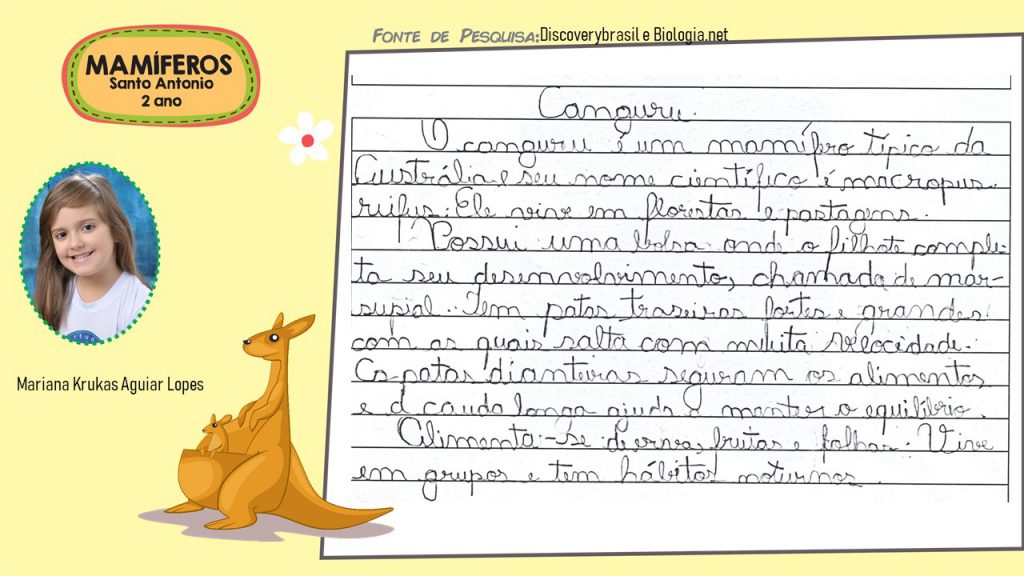 MAMÍFEROS
Santo Antonio
2 ano
FONTE DE PESQUISA: Discoverybrasil e Biologia.net
Mariana Krukas Aguiar Lopes
Canguru.
O canguru é um mamífero típico da
Austrália e seu nome científico é macropus
rufus. Ele vive em florestas e pastagens.
Possui uma bolsa onde o filhote comple-
ta seu desenvolvimento, chamada de mar-
supial. Tem patas traseiras fortes e grandes
com as quais salta com muita velocidade.
As patas dianteiras seguram os alimentos
e a cauda longa ajuda a manter o equilíbrio.
Alimenta-se de ervas, frutas e folhas. Vive
em grupos e tem hábitos noturnos.